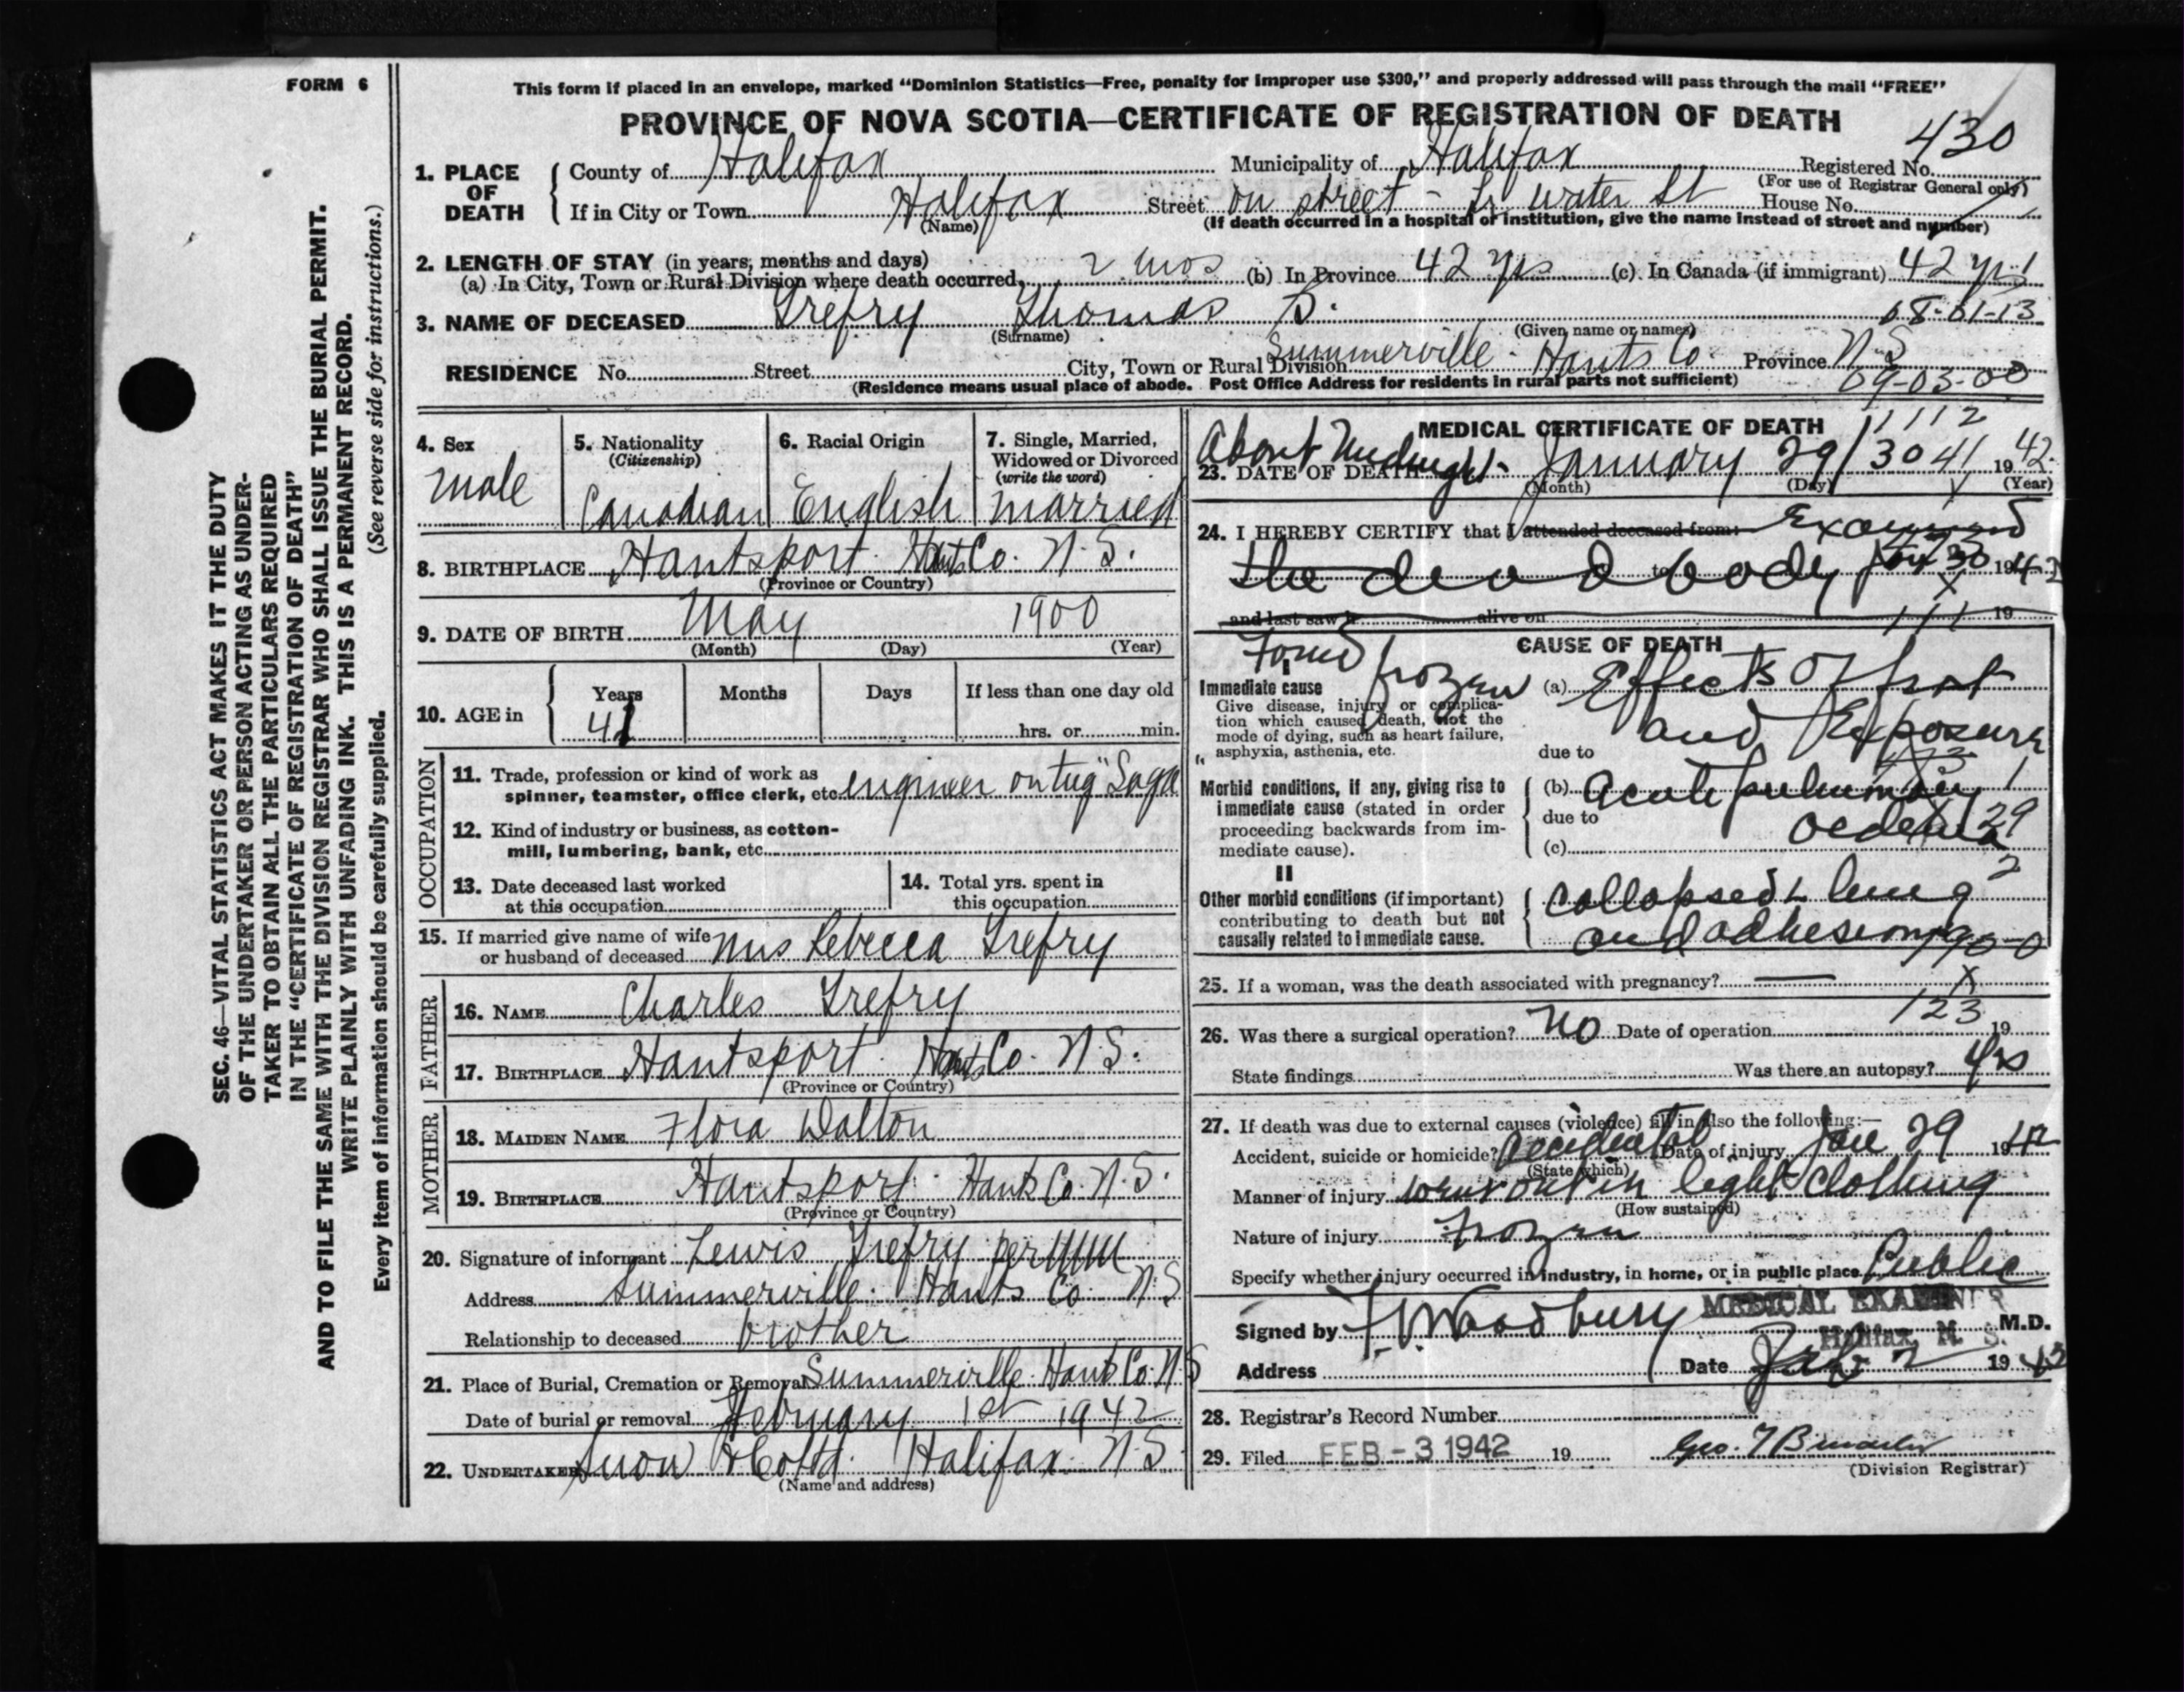 FORM 6
This form if placed in an envelope, marked "Dominion Statistics—Free, penalty for improper use $300," and properly addressed will pass through the mail "FREE"
PROVINCE OF NOVA SCOTIA—CERTIFICATE OF REGISTRATION OF DEATH
430
1. PLACE OF DEATH
County of Halifax Municipality of Halifax Registered No.
(For use of Registrar General only)
If in City or Town Halifax Street on street - Lr water St House No.
(Name) (If death occurred in a hospital or institution, give the name instead of street and number)
2. LENGTH OF STAY (in years, months and days)
(a) In City, Town or Rural Division where death occurred 2 mos (b) In Province 42 yrs (c) In Canada (if immigrant) 42 yrs
3. NAME OF DECEASED Trefry Thomas B. 08-01-13
(Surname) (Given name or names)
RESIDENCE No. Street City, Town or Rural Division Summerville - Hants Co. Province N S
(Residence means usual place of abode. Post Office Address for residents in rural parts not sufficient) 09-03-00
4. Sex
male
5. Nationality
(Citizenship)
Canadian
6. Racial Origin
English
7. Single, Married,
Widowed or Divorced
(write the word)
married
8. BIRTHPLACE Hantsport. Hants Co. N.S.
(Province or Country)
9. DATE OF BIRTH May 1900
(Month) (Day) (Year)
10. AGE in
Years Months Days If less than one day old
41 hrs. or min.
OCCUPATION
11. Trade, profession or kind of work as
spinner, teamster, office clerk, etc. engineer on tug "Saga"
12. Kind of industry or business, as cotton-
mill, lumbering, bank, etc.
13. Date deceased last worked
at this occupation
14. Total yrs. spent in
this occupation
15. If married give name of wife
or husband of deceased Mrs Rebecca Trefry
FATHER
16. NAME Charles Trefry
17. BIRTHPLACE Hantsport. Hants Co. N.S.
(Province or Country)
MOTHER
18. MAIDEN NAME Flora Dalton
19. BIRTHPLACE Hantsport. Hants Co. N.S.
(Province or Country)
20. Signature of informant Lewis Trefry per
Address Summerville. Hants Co. N.S
Relationship to deceased brother
21. Place of Burial, Cremation or Removal Summerville. Hants Co. N.S
Date of burial or removal February 1st 1942
22. UNDERTAKER Snow & Co Ltd. Halifax. N.S.
(Name and address)
MEDICAL CERTIFICATE OF DEATH
1112
About Midnight
23. DATE OF DEATH January 29/30 41 1942
(Month) (Day) (Year)
24. I HEREBY CERTIFY that I attended deceased from: Examined
the dead body Jan 30 1942
and last saw h alive on 19
CAUSE OF DEATH
Found frozen
I
Immediate cause
Give disease, injury or complica-
tion which caused death, not the
mode of dying, such as heart failure,
asphyxia, asthenia, etc.
(a) Effects of frost
and Exposure
due to
Morbid conditions, if any, giving rise to
immediate cause (stated in order
proceeding backwards from im-
mediate cause).
(b) acute pulmonary
due to
oedema
(c)
II
Other morbid conditions (if important)
contributing to death but not
causally related to immediate cause.
Collapsed L lung
and adhesions
25. If a woman, was the death associated with pregnancy? —
123
26. Was there a surgical operation? No Date of operation 19
State findings Was there an autopsy? yes
27. If death was due to external causes (violence) fill in also the following:—
Accident, suicide or homicide? Accidental Date of injury Jan 29 1942
(State which)
Manner of injury went out in light clothing
(How sustained)
Nature of injury Frozen
Specify whether injury occurred in industry, in home, or in public place Public
MEDICAL EXAMINER
Signed by F.V. Woodbury M.D.
Halifax, N. S.
Address Date 2 19
28. Registrar's Record Number
29. Filed FEB - 3 1942 19
(Division Registrar)
SEC. 46—VITAL STATISTICS ACT MAKES IT THE DUTY
OF THE UNDERTAKER OR PERSON ACTING AS UNDER-
TAKER TO OBTAIN ALL THE PARTICULARS REQUIRED
IN THE "CERTIFICATE OF REGISTRATION OF DEATH"
AND TO FILE THE SAME WITH THE DIVISION REGISTRAR WHO SHALL ISSUE THE BURIAL PERMIT.
WRITE PLAINLY WITH UNFADING INK. THIS IS A PERMANENT RECORD.
Every item of information should be carefully supplied. (See reverse side for instructions.)